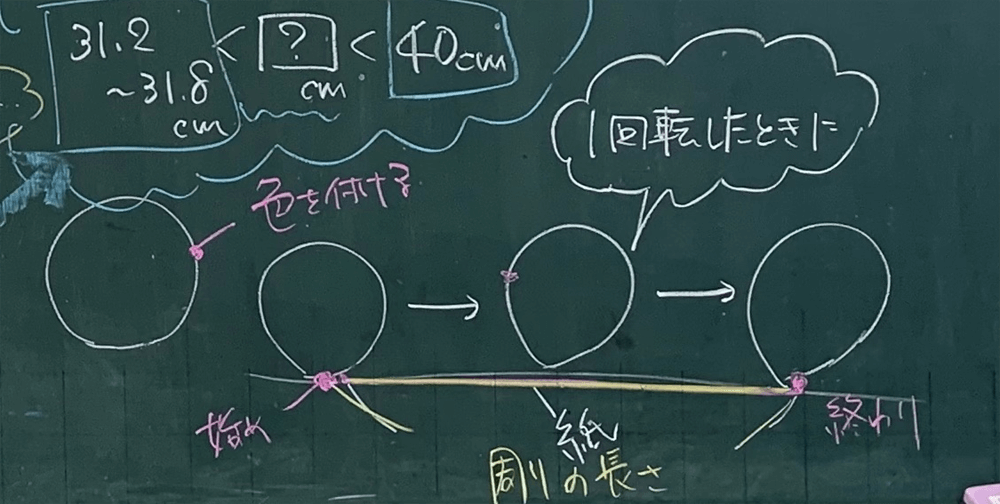 31.2 < ? < 40cm
~31.8 cm
cm
1回転したときに
色を付ける
始め
紙
終わり
周りの長さ